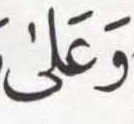 وَعَلىٰ